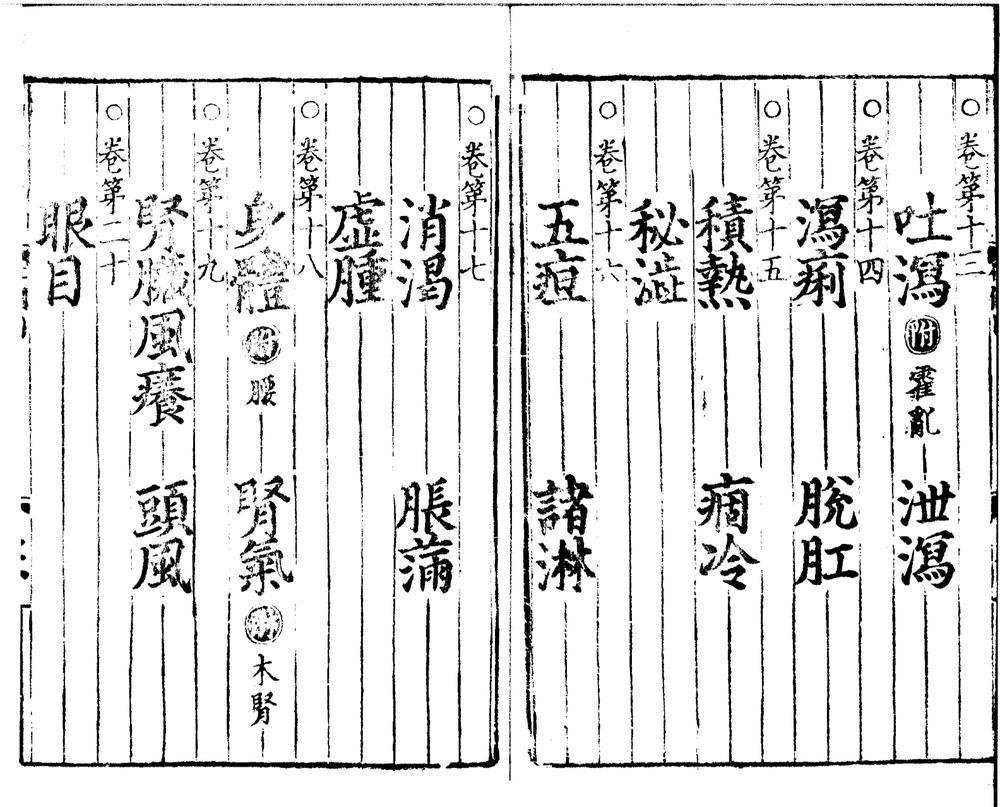 ○卷第十三
吐瀉 附 霍亂 泄瀉
○卷第十四
瀉痢 脫肛
○卷第十五
積熱 痼冷
秘澁
○卷第十六
五疸 諸淋
○卷第十七
消渴 脹滿
虛腫
○卷第十八
身體 附 腰 腎氣 附 木腎
○卷第十九
腎臟風癢 頭風
○卷第二十
眼目